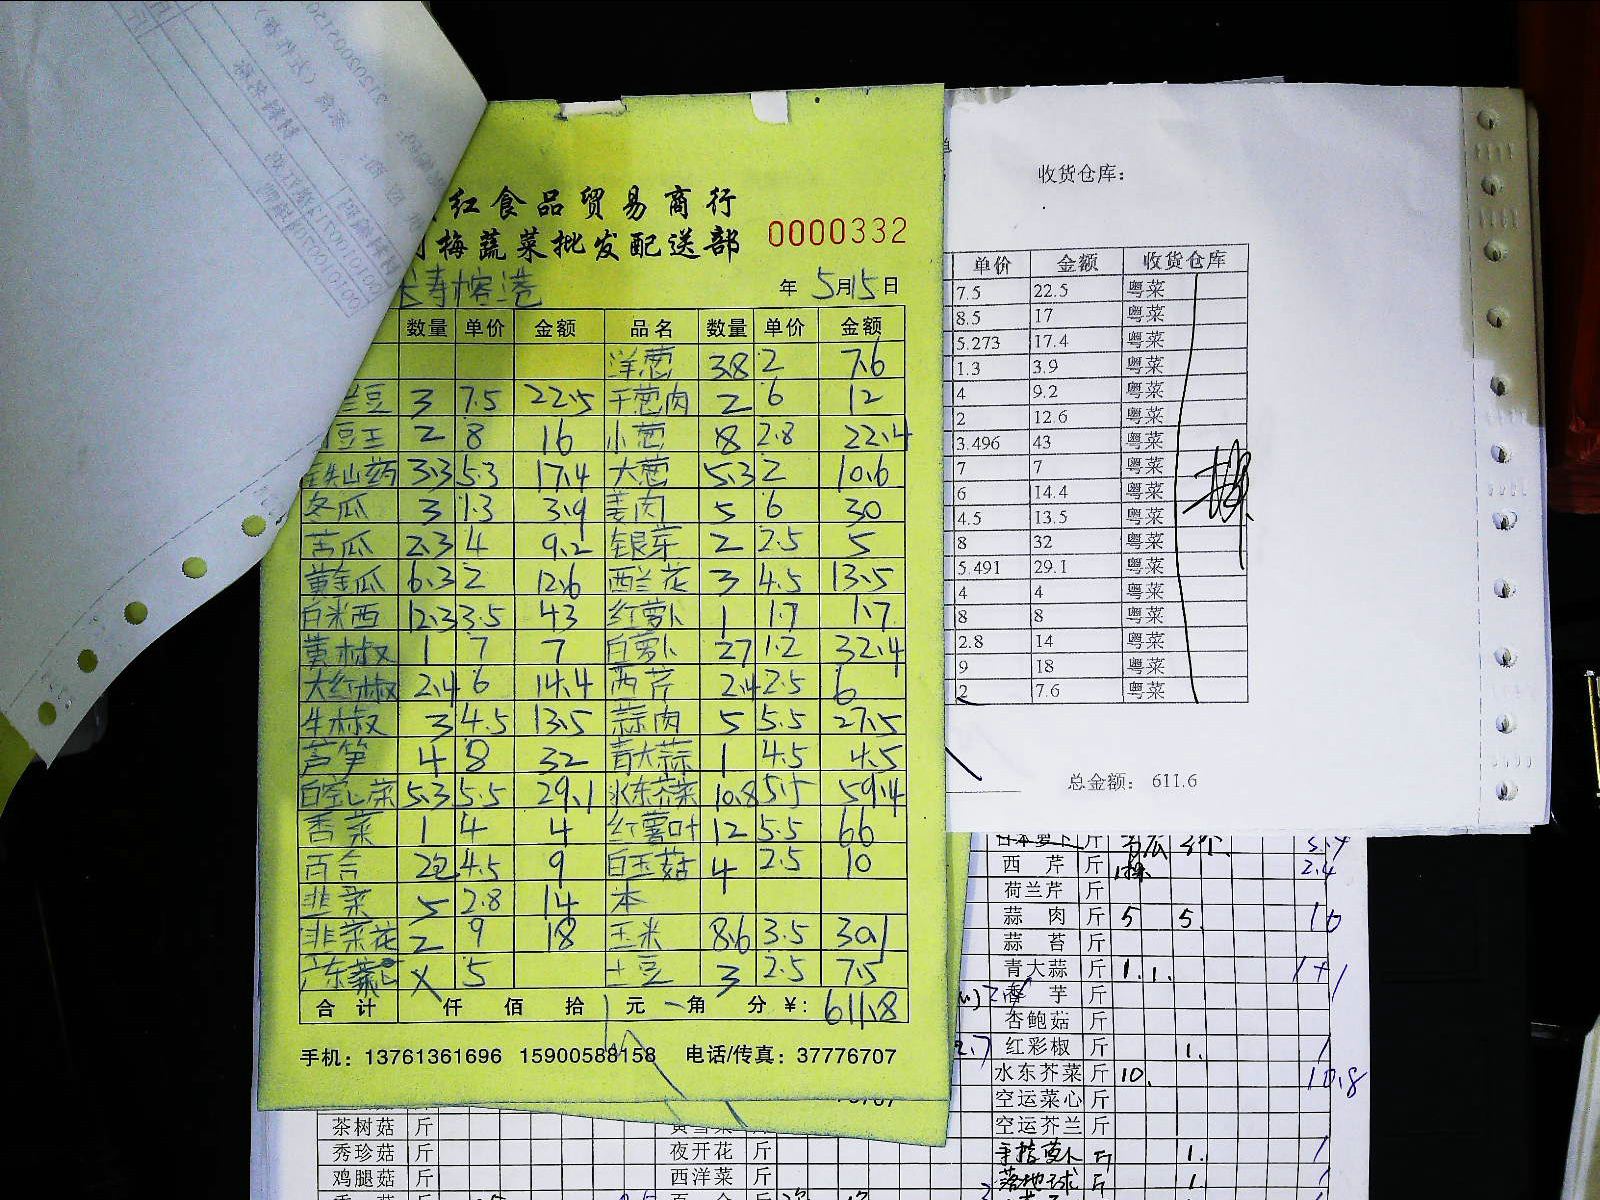 红食品贸易商行
梅蔬菜批发配送部 0000332
长寿榕港 年 5月15日
数量 单价 金额 品名 数量 单价 金额
洋葱 3.8 2 7.6
兰豆 3 7.5 22.5 干葱肉 2 6 12
豆王 2 8 16 小葱 8 2.8 22.4
铁山药 3.3 5.3 17.4 大葱 5.3 2 10.6
冬瓜 3 1.3 3.9 姜肉 5 6 30
苦瓜 2.3 4 9.2 银芽 2 2.5 5
黄金瓜 6.3 2 12.6 西兰花 3 4.5 13.5
白米西 12.3 3.5 43 红萝卜 1 1.7 1.7
黄椒 1 7 7 白萝卜 27 1.2 32.4
大红椒 2.4 6 14.4 西芹 2.4 2.5 6
牛椒 3 4.5 13.5 蒜肉 5 5.5 27.5
芦笋 4 8 32 青大蒜 1 4.5 4.5
白空心菜 5.3 5.5 29.1 水东芥菜 10.8 5.5 59.4
香菜 1 4 4 红薯叶 12 5.5 66
百合 2包 4.5 9 白玉菇 4 2.5 10
韭菜 5 2.8 14 本
韭菜花 2 9 18 玉米 8.6 3.5 30.1
广东菜心 X 5 土豆 3 2.5 7.5
合计 仟 佰 拾 元 角 分 ¥: 611.8
手机: 13761361696 15900588158 电话/传真: 37776707
收货仓库:
单价 金额 收货仓库
7.5 22.5 粤菜
8.5 17 粤菜
5.273 17.4 粤菜
1.3 3.9 粤菜
4 9.2 粤菜
2 12.6 粤菜
3.496 43 粤菜
7 7 粤菜
6 14.4 粤菜
4.5 13.5 粤菜
8 32 粤菜
5.491 29.1 粤菜
4 4 粤菜
8 8 粤菜
2.8 14 粤菜
9 18 粤菜
2 7.6 粤菜
总金额: 611.6
日本萝卜 斤
西芹 斤 2.4
荷兰芹 斤
蒜肉 斤 5 5 10
蒜苔 斤
青大蒜 斤 1. 1. 1+1
香芋 斤
杏鲍菇 斤
2.7 红彩椒 斤 1. 1
水东芥菜 斤 10. 10.8
空运菜心 斤
空运芥兰 斤
手指萝卜 斤 1. 1
落地球 斤 1 1
茶树菇 斤
秀珍菇 斤 夜开花 斤
鸡腿菇 斤 西洋菜 斤